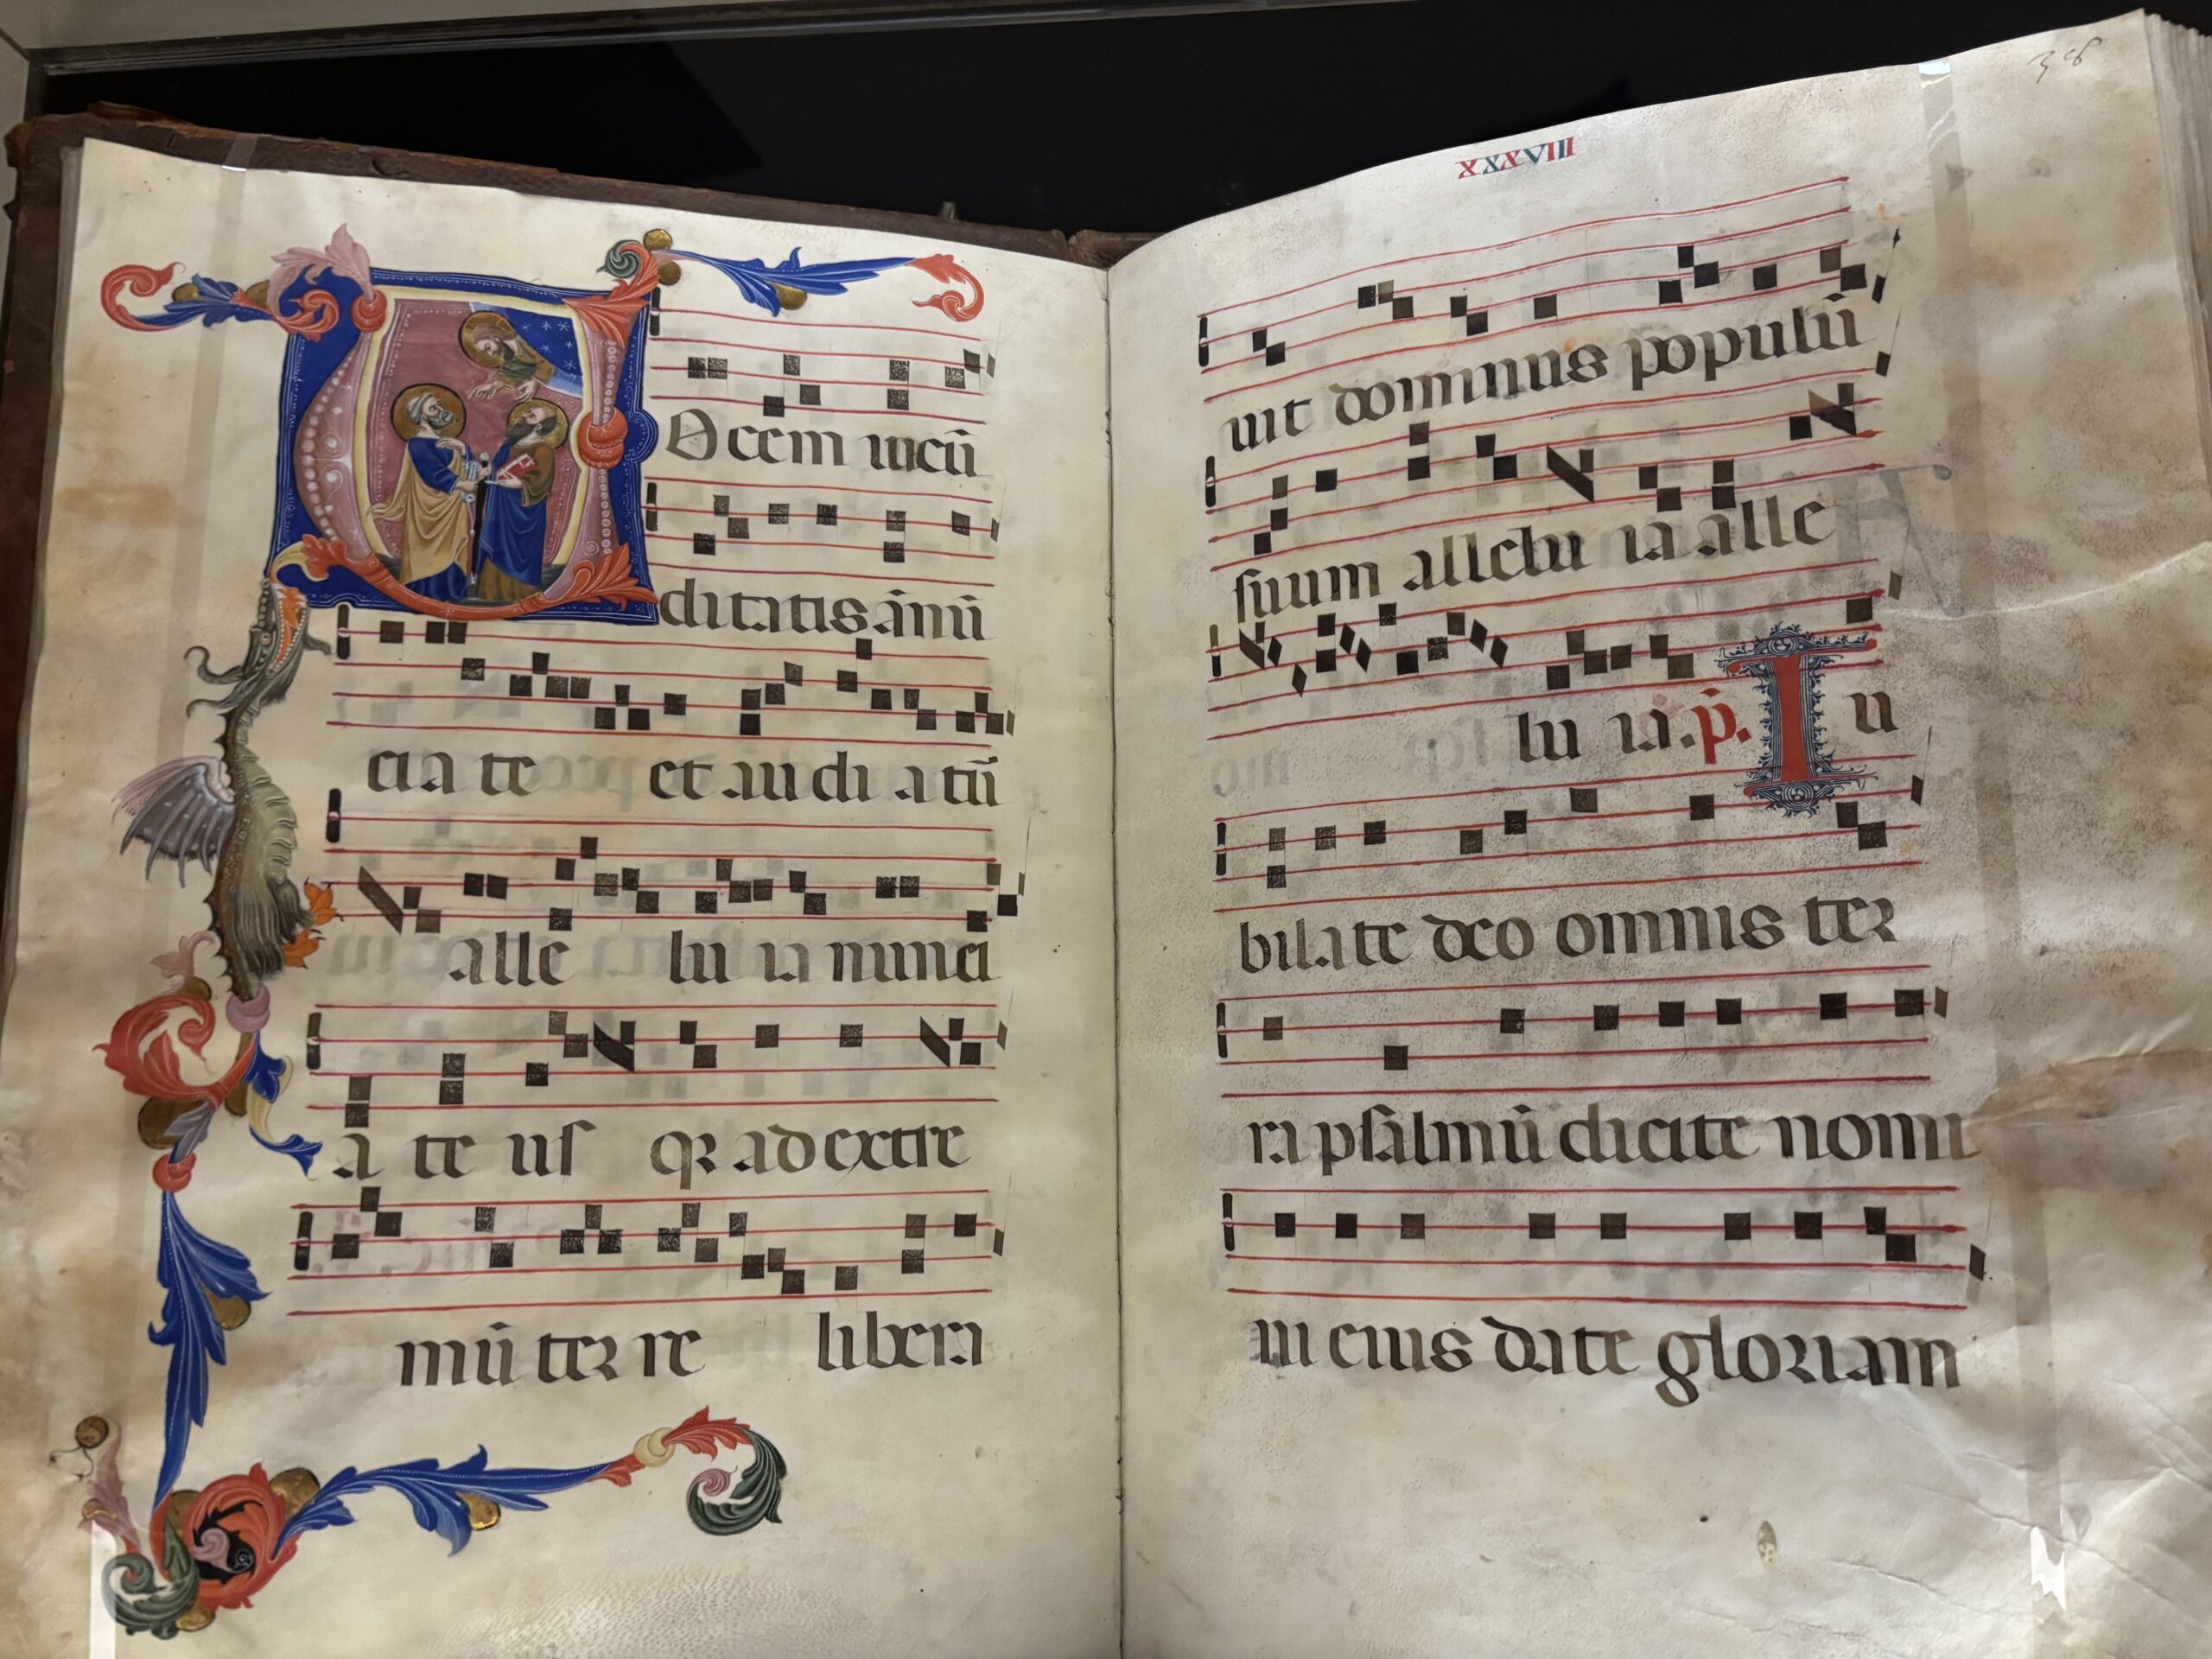 VOcem iocū
ditatis ānū
cia te et au di a tū
alle lu ia nunci
a te us q₃ ad extre
mū ter re libera
38
XXXVIII
uit dominus populū
suum allelu ia alle
lu ia. p̄. Iu
bilate deo omnis ter
ra psalmū dicite nomi
ni eius date gloriam